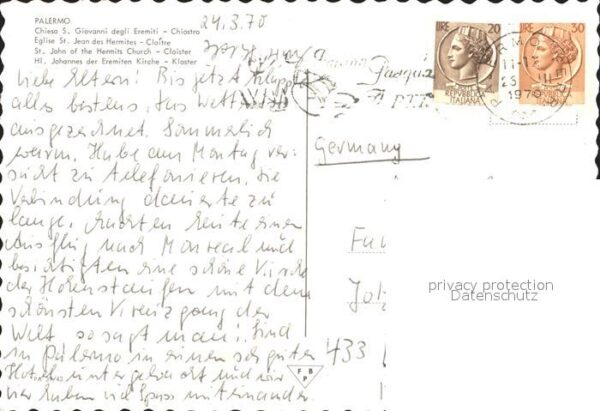 PALERMO
Chiesa S. Giovanni degli Eremiti - Chiostro
Eglise St. Jean des Hermites - Cloître
St. John of the Hermits Church - Cloister
Hl. Johannes der Eremiten Kirche - Kloster
24.3.70
Liebe Eltern! Bis jetzt klappt
alles bestens, das Wetter ist
ausgezeichnet. Sommerlich
warm. Habe am Montag ver-
sucht zu telefonieren, die
Verbindung dauerte zu
lange. machten heute einen
Ausflug nach Monreal und
besichtigten eine schöne Kirche
der Hohenstaufen mit dem
schönsten Kreuzgang der
Welt so sagt man! Sind
in Palermo in einem sehr guten
Hotel untergebracht und wir
vier haben viel Spass miteinander.
LIRE 20
REPVBBLICA
ITALIANA
LIRE 30
ITALIANA
1970
Germany
433
F B P
privacy protection
Datenschutz